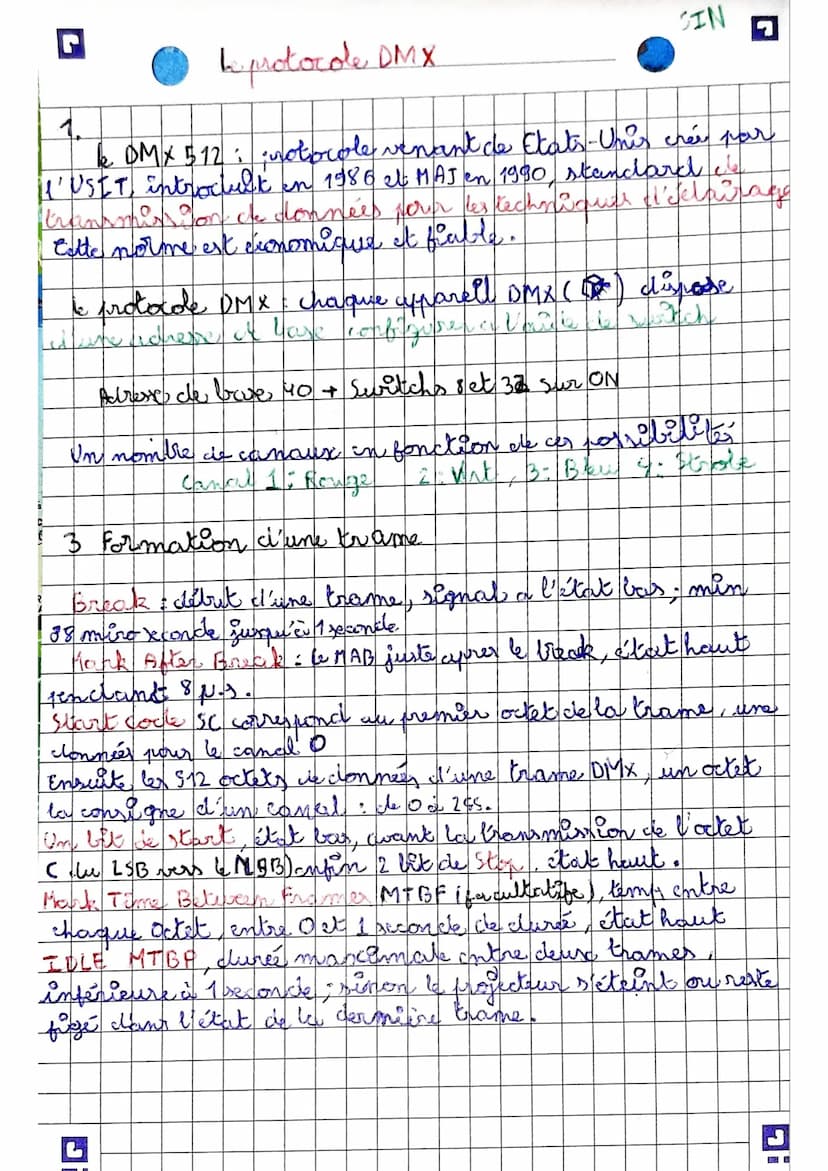 SIN
Le protocole DMX
1.
le DMX 512 : protocole venant de Etats-Unis créé par
l'USIT, introduit en 1986 et MAJ en 1990, standard de
transmission de données pour les techniques d'éclairage
Cette norme est économique et fiable.
le protocole DMX : chaque appareil DMX ( ) dispose
d'une adresse de base configurer à l'aide de switch
Adresse de base 40 → Switchs 8 et 32 sur ON
Un nombre de canaux en fonction de ces possibilités
Canal 1 : Rouge 2 : Vert, 3 : Bleu 4 : Strobe
3 Formation d'une trame
Break : début d'une trame, signal à l'état bas ; min
88 micro seconde jusqu'à 1 seconde.
Mark After Break : le MAB juste apres le break, état haut
pendant 8 µ.s.
Start code SC correspond au premier octet de la trame, une
données pour le canal 0
Ensuite, les 512 octets de données d'une trame DMX, un octet
la consigne d'un canal : de 0 à 255.
Un bit de start, état bas, avant la transmission de l'octet
( du LSB vers le MSB) enfin 2 bit de Stop, état haut.
Mark Time Between Frames MTBF (facultatife), temps entre
chaque octet, entre 0 et 1 seconde de durée, état haut
IDLE MTBP, durée maximale entre deux trames,
inférieure à 1 seconde ; sinon le projecteur s'éteint ou reste
figé dans l'état de la dernière trame.